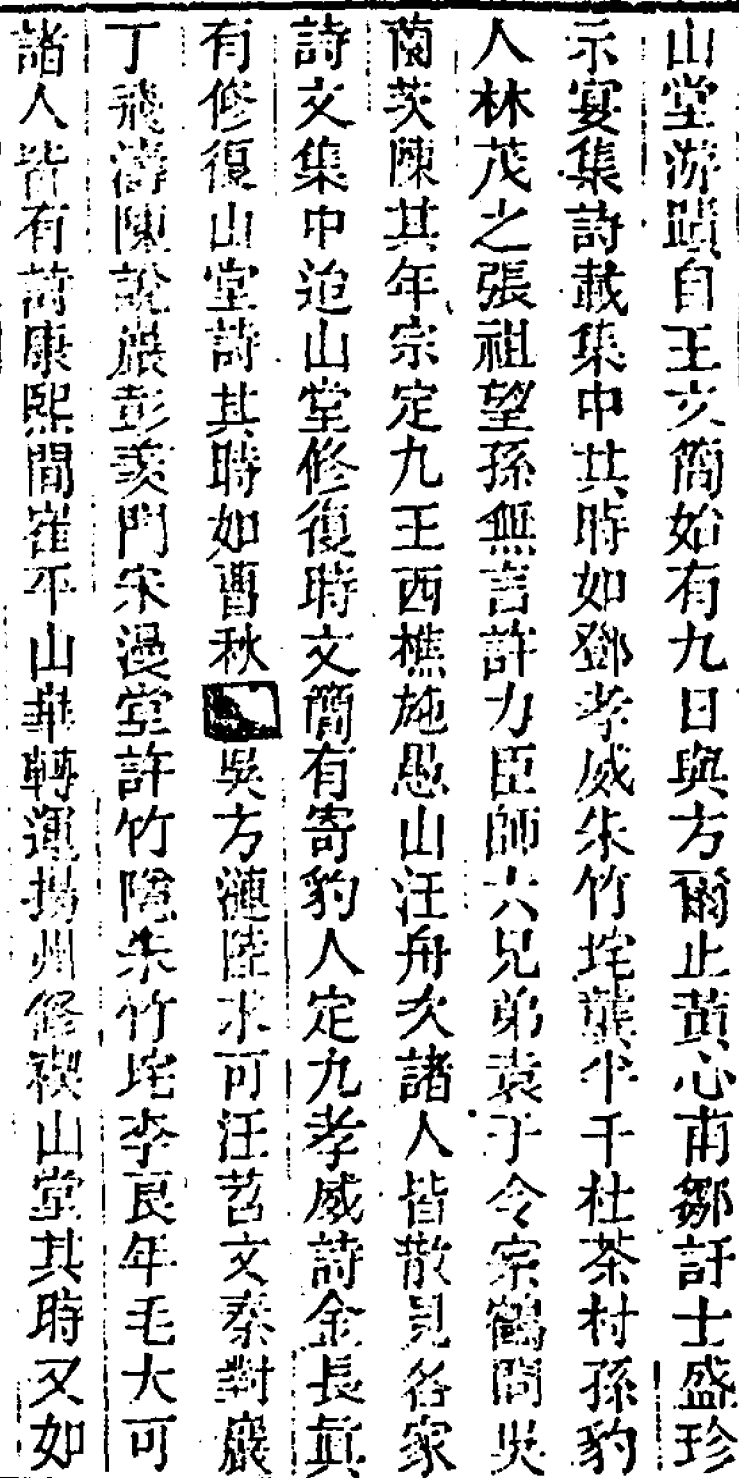 山堂游蹟自王文簡始有九日與方爾止黃心甫鄒訏士盛珍
示宴集詩載集中其時如鄧孝威朱竹垞龔半千杜茶村孫豹
人林茂之張祖望孫無言許力臣師六兄弟袁于令宗鶴問吳
薗茨陳其年宗定九王西樵施愚山汪舟次諸人皆散見各家
詩文集中迨山堂修復時文簡有寄豹人定九孝威詩金長真
有修復山堂詩其時如曹秋吳方漣陸求可汪苕文秦對巖
丁飛濤陳說巖彭羨門宋漫堂許竹隱朱竹垞李良年毛大可
諸人皆有詩康熙間崔平山華轉運揚州修禊山堂其時又如